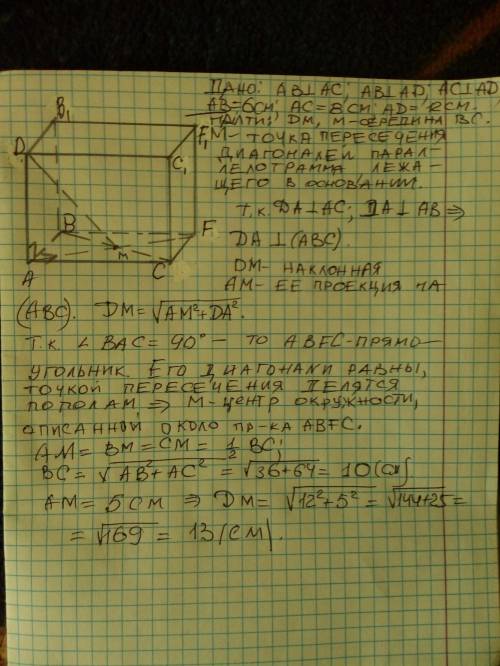 Дано: AB⊥AC; AB⊥AD; AC⊥AD
AB=6см; AC=8см; AD=12см.
Найти: DM, M-середина BC.
M- точка пересечения
диагоналей парал-
лелограмма лежа-
щего в основании.
т.к. DA⊥AC; DA⊥AB ⇒
DA⊥(ABC).
DM- наклонная
AM- ее проекция на
(ABC). DM=√AM²+DA².
Т.к. ∠BAC=90° – то ABFC-прямо-
угольник. Его диагонали равны,
точкой пересечения делятся
пополам, ⇒ M-центр окружности,
описанной около пр-ка ABFC.
AM=BM=CM=½BC;
BC=√AB²+AC²=√36+64=10(см)
AM=5см ⇒ DM=√12²+5²=√144+25=
=√169=13(см).
B₁
D
F₁
C₁
B
F
M
A
C